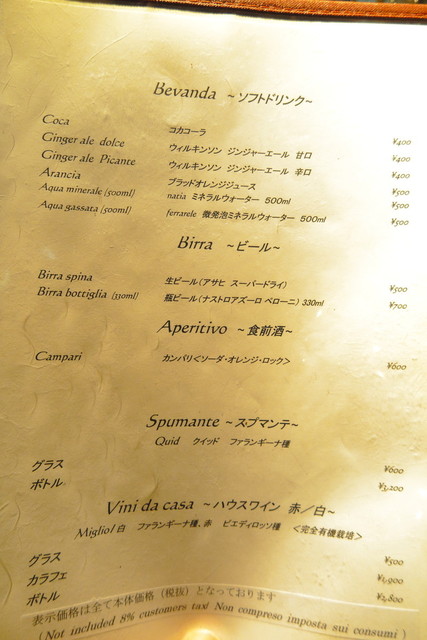 Bevanda ～ソフトドリンク～
Coca コカコーラ ¥400
Ginger ale dolce ウィルキンソン ジンジャーエール 甘口 ¥400
Ginger ale Picante ウィルキンソン ジンジャーエール 辛口 ¥400
Arancia ブラッドオレンジジュース ¥500
Aqua minerale [500ml] natia ミネラルウォーター 500ml ¥500
Aqua gassata [500ml] ferrarele 微発泡ミネラルウォーター 500ml ¥500
Birra ～ビール～
Birra spina 生ビール(アサヒ スーパードライ) ¥500
Birra bottiglia [330ml] 瓶ビール(ナストロアズーロ ペローニ) 330ml ¥700
Aperitivo ～食前酒～
Campari カンパリ<ソーダ・オレンジ・ロック> ¥600
Spumante ～スプマンテ～
Quid クイッド ファランギーナ種
グラス ¥600
ボトル ¥3,200
Vini da casa ～ハウスワイン 赤／白～
Miglio1 白 ファランギーナ種、赤 ピエディロッソ種 <完全有機栽培>
グラス ¥500
カラフェ ¥1,900
ボトル ¥2,800
表示価格は全て本体価格（税抜）となっております
(Not included 8% customers tax/ Non compreso imposta sui consumi)